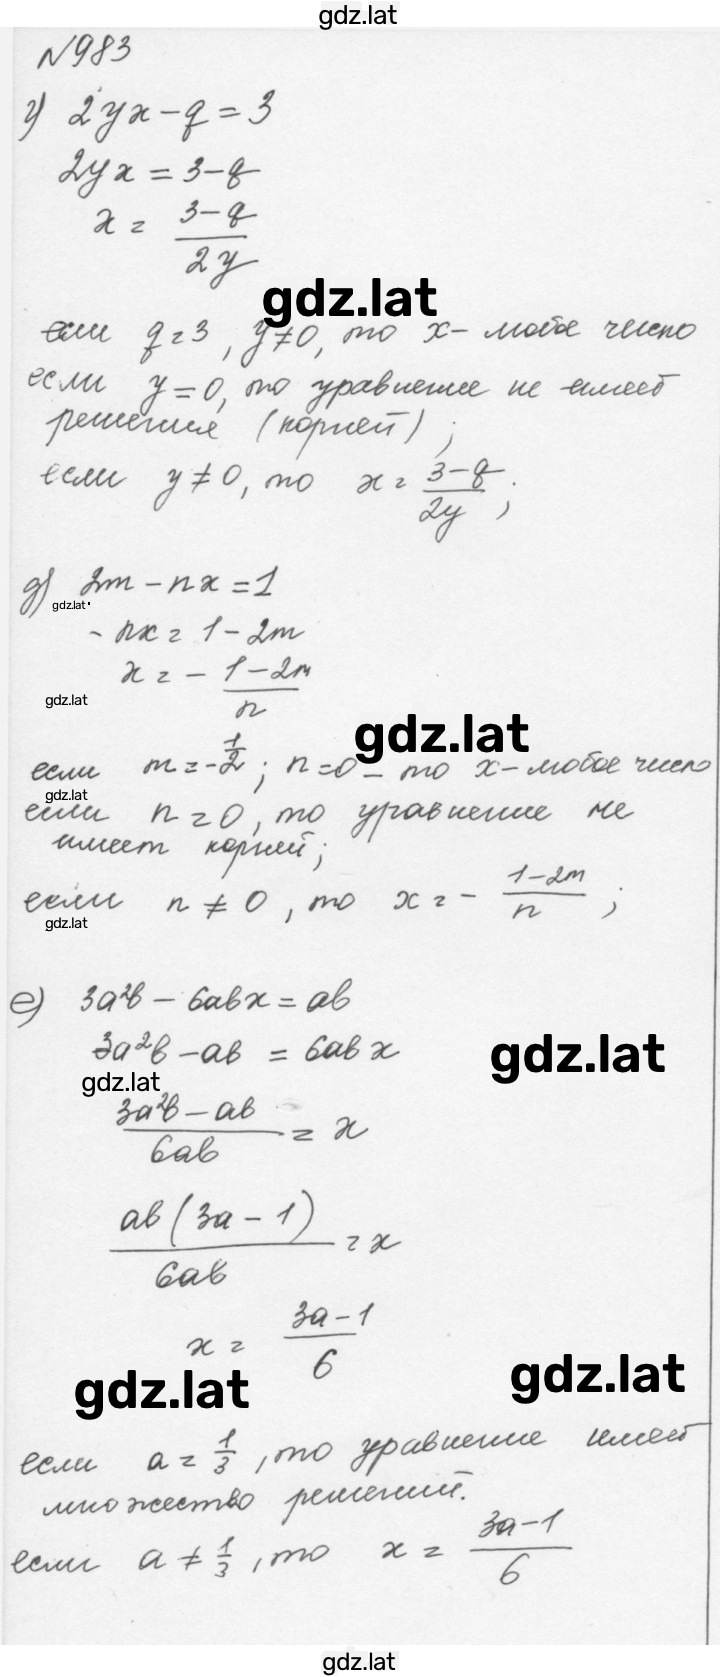 gdz.lat
№983
г) 2yx - q = 3
2yx = 3 - q
x = (3 - q)/(2y)
gdz.lat
если q = 3, y ≠ 0, то x - любое число
если y = 0, то уравнение не имеет
решения (корней);
если y ≠ 0, то x = (3 - q)/(2y);
д) 2m - nx = 1
gdz.lat
- nx = 1 - 2m
x = - (1 - 2m)/n
gdz.lat
gdz.lat
если m = -1/2; n = 0 - то x - любое число
gdz.lat
если n = 0, то уравнение не
имеет корней;
если n ≠ 0, то x = - (1 - 2m)/n;
gdz.lat
е) 3a²b - 6abx = ab
3a²b - ab = 6abx
gdz.lat
gdz.lat
(3a²b - ab)/(6ab) = x
(ab(3a - 1))/(6ab) = x
x = (3a - 1)/6
gdz.lat
gdz.lat
если a = 1/3, то уравнение имеет
множество решений.
если a ≠ 1/3, то x = (3a - 1)/6
gdz.lat